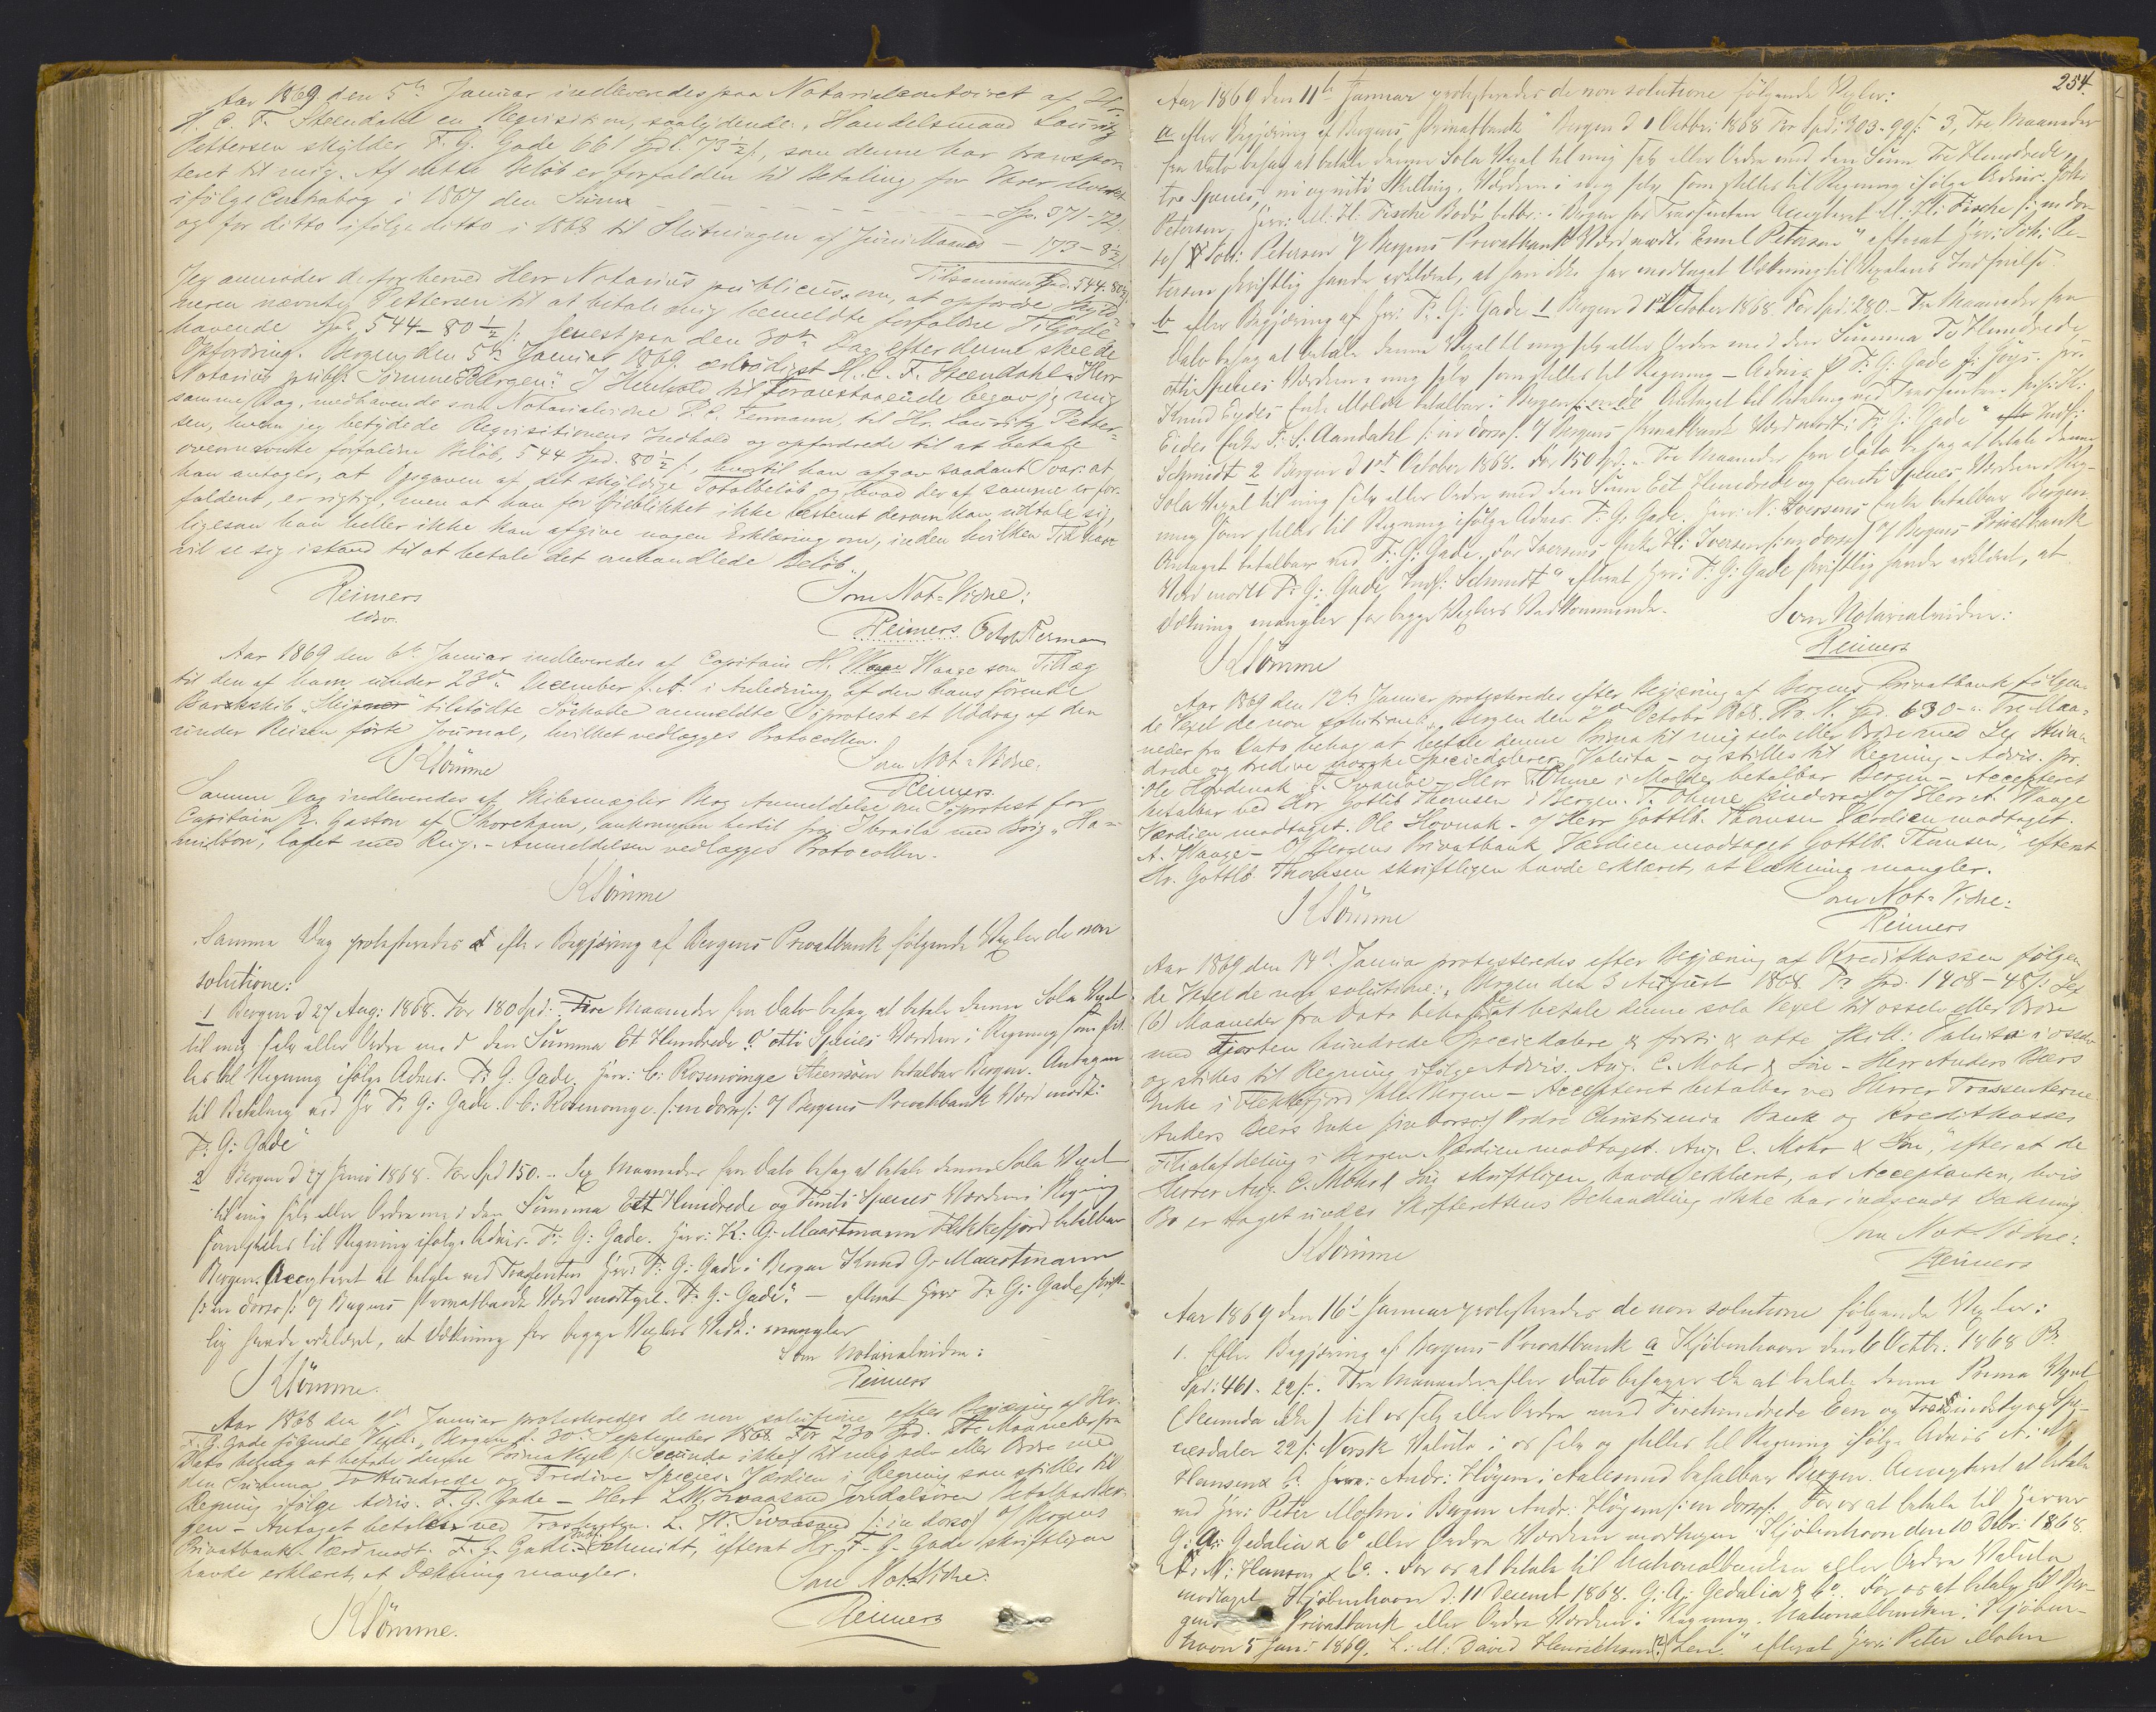 Aar 1869 den 5te Januar indleveredes paa Notarialcontoiret af Hr.
H. C. F. Steendahl en Reqvisition, saalydende: "Handelsmand Lauritz
Pettersen skylder F. G. Gade 661 Spd. 73½ s, som denne har transpor-
teret til mig. Af dette Beløb er forfalden til Betaling for Varer leveret
ifølge Contrabog i 1867 den Summa - - - - - Sp. 371-72
og for ditto ifølge ditto i 1868 til Slutningen af Juni Maaned — 173-8½
Tilsammen Spd. 544. 80½
Jeg anmoder derfor herved Herr Notarius publicus om, at opfordre Hand-
meren nævnte Pettersen til at betale mig bemeldte forfaldne Tilgode-
havende Spd. 544-80½ s senest paa den 30te Dag efter denne skeede
Opfordring. Bergen, den 5te Januar 1869. ærbødigst H. C. F. Steendahl. Herr
Notarius publ. Sømme Bergen." I Henhold til Foranstaaende begav jeg mig
samme Dag, medhavende som Notarialvidne O. C. Fermann, til Hr. Lauritz Petter-
sen, hvem jeg betydede Reqvisitionens Indhold og opfordrede til at betale
ovennævnte forfaldne Beløb, 544 Spd. 80½ s, hvortil han afgav saadant Svar: at
han antager, at Opgaven af det skyldige Totalbeløb og hvad deraf samme er for-
faldent, er rigtig, men at han for Øieblikket ikke bestemt derom kan udtale sig,
ligesom han heller ikke kan afgive nogen Erklæring om, inden hvilken Tid han
vil se sig istand til at betale det omhandlede Beløb.
Reimers
Som Not=Vidne:
Reimers
Aar 1869 den 6te Januar indleveredes af Capitain H. Waage som Tillæg
til den af ham under 23de December f. A. i Anledning af den hans førende
Barkskib tilstødte Søskade anmeldte Søprotest et Uddrag af den
under Reisen førte Journal, hvilket vedlægges Protocollen.
K Sømme
Som Not=Vidne:
Reimers
Samme Dag indleveredes af Skibsmægler Berg Anmeldelse om Søprotest for
Capitain R. Gaston af Shoreham, ankommen hertil fra Ibraila med Brig "Ha-
milton", ladet med Rug. - Anmeldelsen vedlægges Protocollen.
K Sømme
Samme Dag protesteredes efter Begjæring af Bergens Privatbank følgende Vexler de non
solutione:
1 Bergen d 27 Aug: 1868. For 180 Spd. Fire Maaneder fra Dato behag at betale denne Sola Vexel
til mig selv eller Ordre med den Summa Et Hundrede & otti Species Værdien i Regning som stil-
les til Regning ifølge Advis. F: G: Gade. Herr: C: Rosenvinge betalbar Bergen. Antagen
til Betaling ved Hr F: G: Gade. C: Rosenvinge. /: in dorso :/ Bergens Privatbank Værd modt:
F: G: Gade"
2 Bergen d 27 Juni 1868. For Spd 150. - Sex Maaneder fra Dato behag at betale denne Sola Vexel
til mig selv eller Ordre med den Summa Ett Hundrede og Femti Species Værdien i Regning
som stilles til Regning ifølge Advis. F: G: Gade. Herr: K: G: Maartmann Flekkefjord betalbar
Bergen. Accepteret at betale ved Trassenten Herr F: G: Gade i Bergen Knud G. Maartmann
/: in dorso :/ Bergens Privatbank Værd modtget. F: G: Gade". - efterat Herr F: G: Gade skrift-
lig havde erklæret, at Dækning for begge Vexlers Vedk: mangler
K Sømme.
Som Notarialvidne:
Reimers
Aar 1868 den Januar protesteredes de non solutione efter Begjæring af Hr.
F. G. Gade følgende Vexel: "Bergen d. 30. September 1868 For 230 Spd. Tre Maaneder fra
Dato behag at betale denne Prima Vexel /Secunda ikke/ til mig selv eller Ordre med
den Summa To Hundrede og Tredive Species. Værdien i Regning som stilles til
Regning ifølge Advis. F. G. Gade - Herr L. W. Svaasand Jondalsøren betalbar Ber-
gen - Antaget betales ved Trassenten. L. W. Svaasand /: in dorso :/ Bergens
Privatbank. Værd modt. F. G. Gade. Schmidt", efterat Hr. F. G. Gade skriftligen
havde erklæret, at Dækning mangler.
Som Not=Vidne:
K Sømme.
Reimers
254.
Aar 1869 den 11te Januar protesteredes de non solutione følgende Vexler:
a efter Begjæring af Bergens Privatbank "Bergen d 1 Octbr: 1868 For Spd: 303-99 s 3, Tre Maaneder
fra Dato behag at betale denne Sola Vexel til mig selv eller Ordre med den Sum Tre Hundrede,
tre Species, ni og niti Skilling. Værdien i mig selv, som stilles til Regning ifølge Advis. Joh:
Petersen. Herr: M. H. Fische Bodø betbr: i Bergen hos Trassenten Accepteret M. H: Fische /: in dor-
so :/ Joh: Petersen / Bergens Privatbank Værd modt. Emil Petersen" efterat Herr: Joh: Pe-
tersen skriftlig havde erklæret, at han ikke har modtaget Dækning til Vexelens Indfrielse
b efter Begjæring af Herr: F: G: Gade 1 Bergen d 1st October 1868. For Spd: 280.- Tre Maaneder fra
Dato behag at betale denne Vexel til mig selv eller Ordre med den Summa To Hundrede
otti Species Værdien i mig selv som stilles til Regning - Advis. F: G: Gade
Knud Eides Enke Molde betalbar i Bergen Antaget til betaling ved Trassenten
Eides Enke P. S. Aandahl /: in dorso :/ Bergens Privatbank Værd modt: F: G: Gade" Indf:
Schmidt 2 Bergen d 1st October 1868. For 150 Spd. Tre Maaneder fra Dato behag at betale denne
Sola Vexel til mig selv eller Ordre med den Sum Eet Hundrede og femti Species, Værdien i Reg-
ning som stilles til Regning ifølge Advis. F: G: Gade. Herr: N: Iversens Enke betalbar Bergen.
Antaget betalbar ved F: G: Gade. For Iversens Enke H: Iversen /: in dorso :/ Bergens Privatbank
Værd modtt F: G: Gade, Indf: Schmidt" efterat Herr: F: G: Gade skriftlig havde erklæret, at
Dækning mangler for begge Vexlers Vedkommende.
Som Notarialvidne:
K Sømme
Reimers
Aar 1869 den 12te Januar protesteredes efter Begjæring af Bergens Privatbank følgen-
de Vexel de non solutione: "Bergen den October 1868. Pr. N. Spd. 630- Tre Maa-
neder fra Dato behag at betale denne Prima til mig selv eller Ordre med Sex Hun-
drede og tredive norske Speciedaler Valuta - og stilles til Regning - Advis. pr.
Ole Hovdenak - Herr T. Ohme i Molde, betalbar Bergen - Accepteret
betalbar ved Hr. Gottlb Thomsen i Bergen. T. Ohme /in dorso/ Herr A. Waage
Værdien modtaget. Ole Hovnak - / Herr Gottlb. Thomsen Værdien modtaget.
A. Waage - / Bergens Privatbank Værdien modtaget Gottlb. Thomsen", efterat
Hr. Gottlb. Thomsen skriftligen havde erklæret, at Dækning mangler.
Som Not=Vidne:
K Sømme
Reimers
Aar 1869 den 14de Januar protesteredes efter Begjæring af Kreditkassen følgen-
de Vexel de non solutione: "Bergen den 3 August 1868. Pr Spd. 1408-48 s. Sex
(6) Maaneder fra Dato behag at betale denne sola Vexel til osselv eller Ordre
med Fjorten hundrede Speciedalere & forti & otte Skill. Valuta i osselv
og stilles til Regning ifølge Advis. Aug. C. Mohr & Søn - Herr Anders Beers
Enke i Flekkefjord bet. Bergen - Accepteret betalbar ved Herrer Trassenterne
Anders Beers Enke /in dorso/ Ordre Christiania Bank og Kreditkasses
Filialafdeling i Bergen Værdien modtaget. Aug. C. Mohr & Søn", efterat de
Herrer Aug. C. Mohr & Søn skriftligen havde erklæret, at Acceptanten, hvis
Bo er taget under Skifterettens Behandling ikke har indsendt Dækning
Som Not=Vidne:
K Sømme
Reimers
Aar 1869 den 16de Januar protesteredes de non solutione følgende Vexler:
1. Efter Begjæring af Bergens Privatbank a Kjøbenhavn den 6 Octbr: 1868 Pr
Spd: 461. 22 s. Tre Maaneder efter Dato behager De at betale denne Prima Vexel
(Secunda ikke) til os selv eller Ordre med Firehundrede Een og Tresindstyve Spe-
ciesdaler 22 s: Norsk Valuta i os selv og stilles til Regning ifølge Advis A: N:
Hansen & C. Herr: Andr: Høyem i Aalesund betalbar Bergen. Accepteret at betale
ved Herr Peter Mohn i Bergen Andr: Høyem /: in dorso :/ For os at betale til Herrer
G: A: Gedalia & Co eller Ordre Værdien modtagen Kjøbenhavn den 10 Dbr: 1868.
A: N: Hansen & Co. For os at betale til Nationalbanken eller Ordre Valuta
modtaget Kjøbenhavn d: 11 Decemb 1868. G: A: Gedalia & Co. For os at betale til Ber-
gens Privatbank eller Ordre Værdien i Regning. Nationalbanken i Kjøben-
havn 5 Jan: 1869. L: M: David Henrichsen (?) Levi" efterat Herr: Peter Mohn